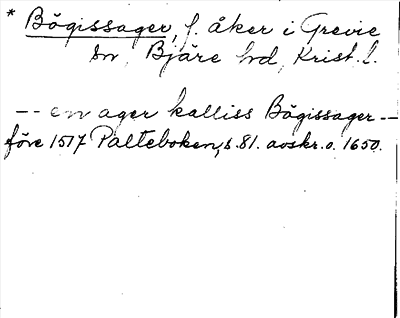 * Bögissager, f. åker i Grevie
sn, Bjäre hd, Krist. l.
-- en ager kalliss Bögissager --
före 1517 Palteboken, s. 81. avskr. o. 1650.